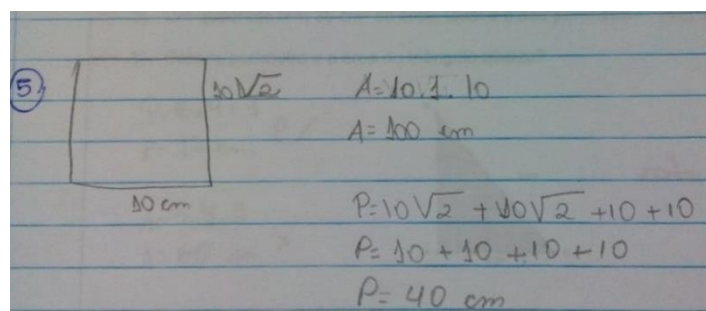 5)
10√2
10 cm
A=10.1.10
A=100 cm
P=10√2 + 10√2 +10 +10
P= 10 +10 +10 +10
P= 40 cm